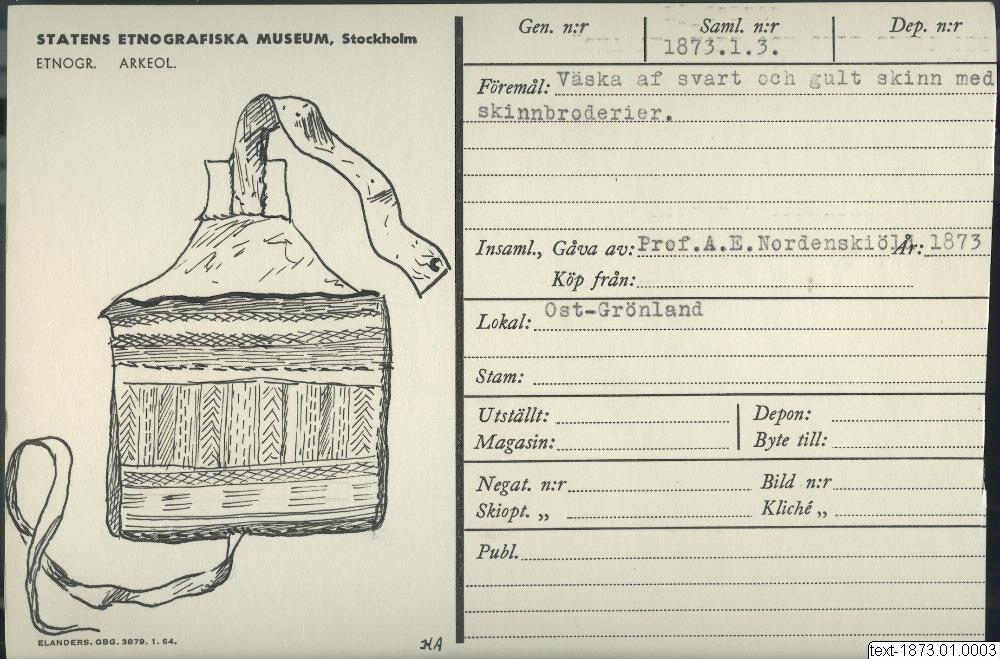 STATENS ETNOGRAFISKA MUSEUM, Stockholm
ETNOGR. ARKEOL.
ELANDERS. GBG. 3879. 1. 64.
HA
Gen. n:r Saml. n:r Dep. n:r
1873.1.3.
Föremål: Väska af svart och gult skinn med
skinnbroderier.
Insaml., Gåva av: Prof.A.E.Nordenskiöld År: 1873
Köp från:
Lokal: Ost-Grönland
Stam:
Utställt: Depon:
Magasin: Byte till:
Negat. n:r Bild n:r
Skiopt. „ Kliché „
Publ.
text-1873.01.0003